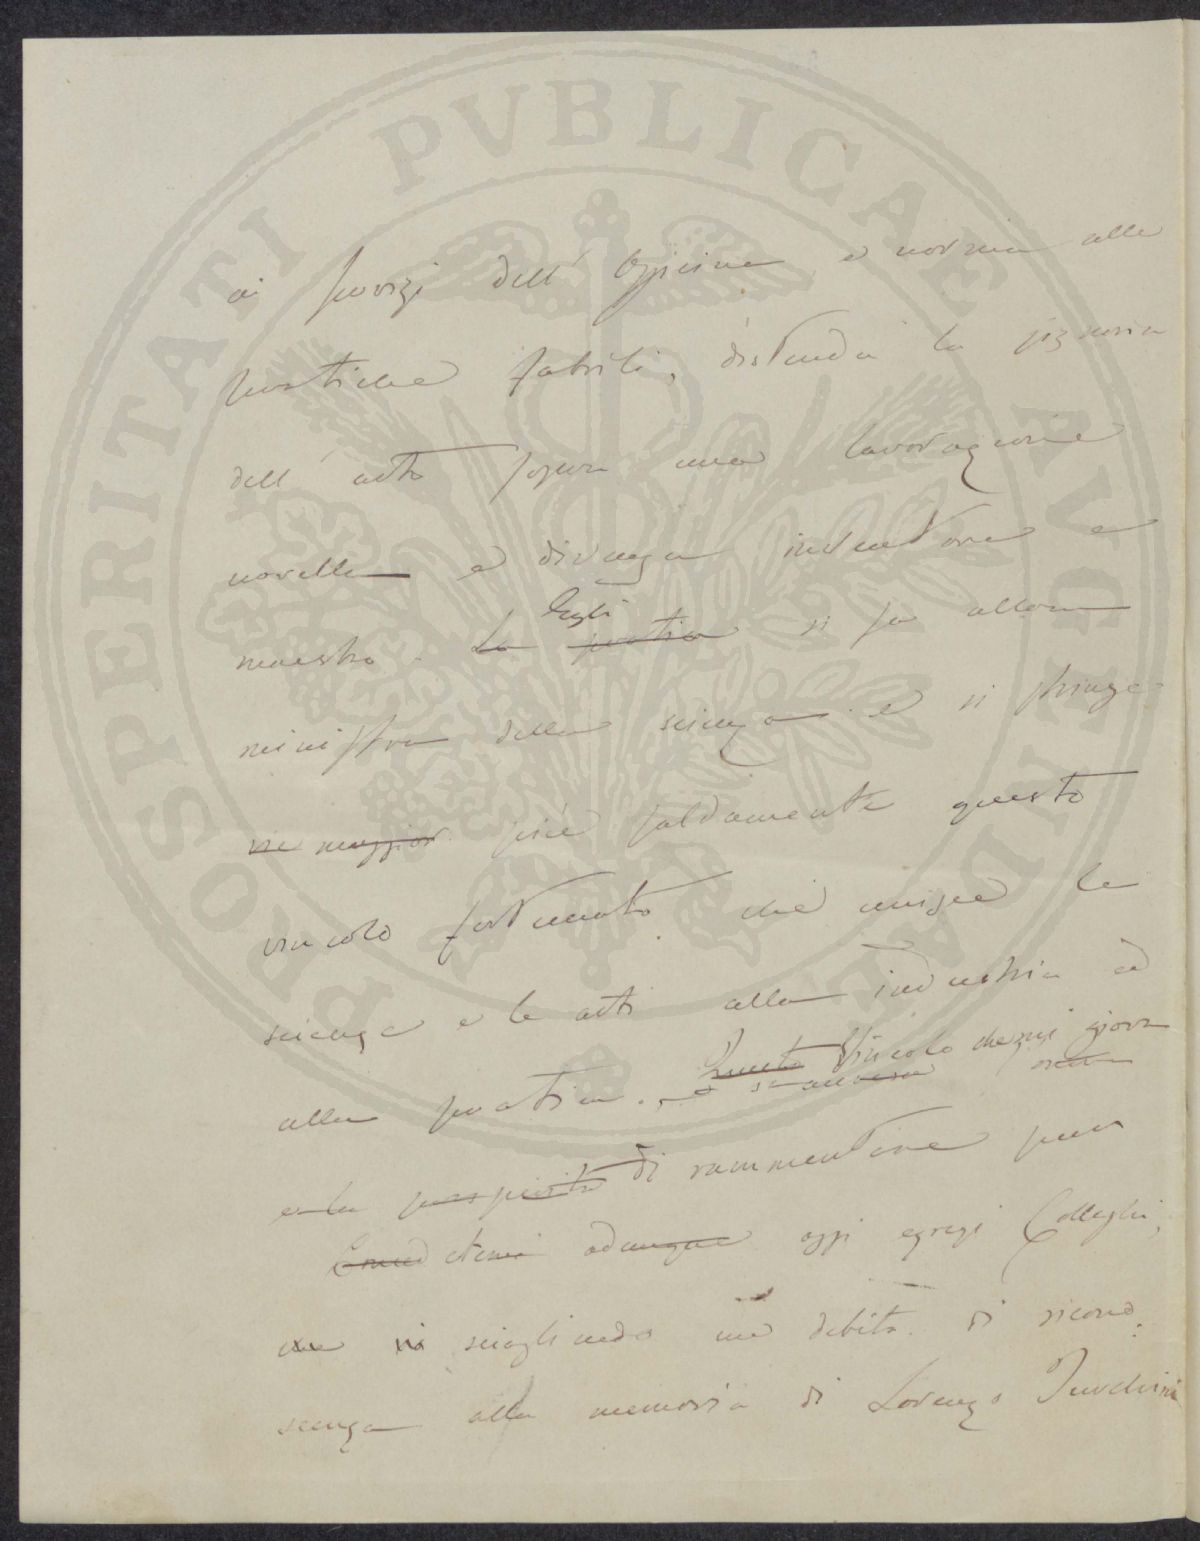 PROSPERITATI PVBLICAE AVGENDAE
ai servizi dell' Officina e norma alle
pratiche fabrili, distenda la signoria
dell' arte sopra una lavorazione
novella e divenga inventore e
maestro. La pratica Egli si fa allora
ministra della scienza e si stringe
vie maggior. più saldamente questo
vincolo fortunato che unisce le
scienze e le arti alla industria ed
alla pratica. Questo Vincolo che mi giova
e la di rammentare pur
adunque oggi egregi Colleghi,
sciogliendo un debito di ricono
scenza alla memoria di Lorenzo Turchini